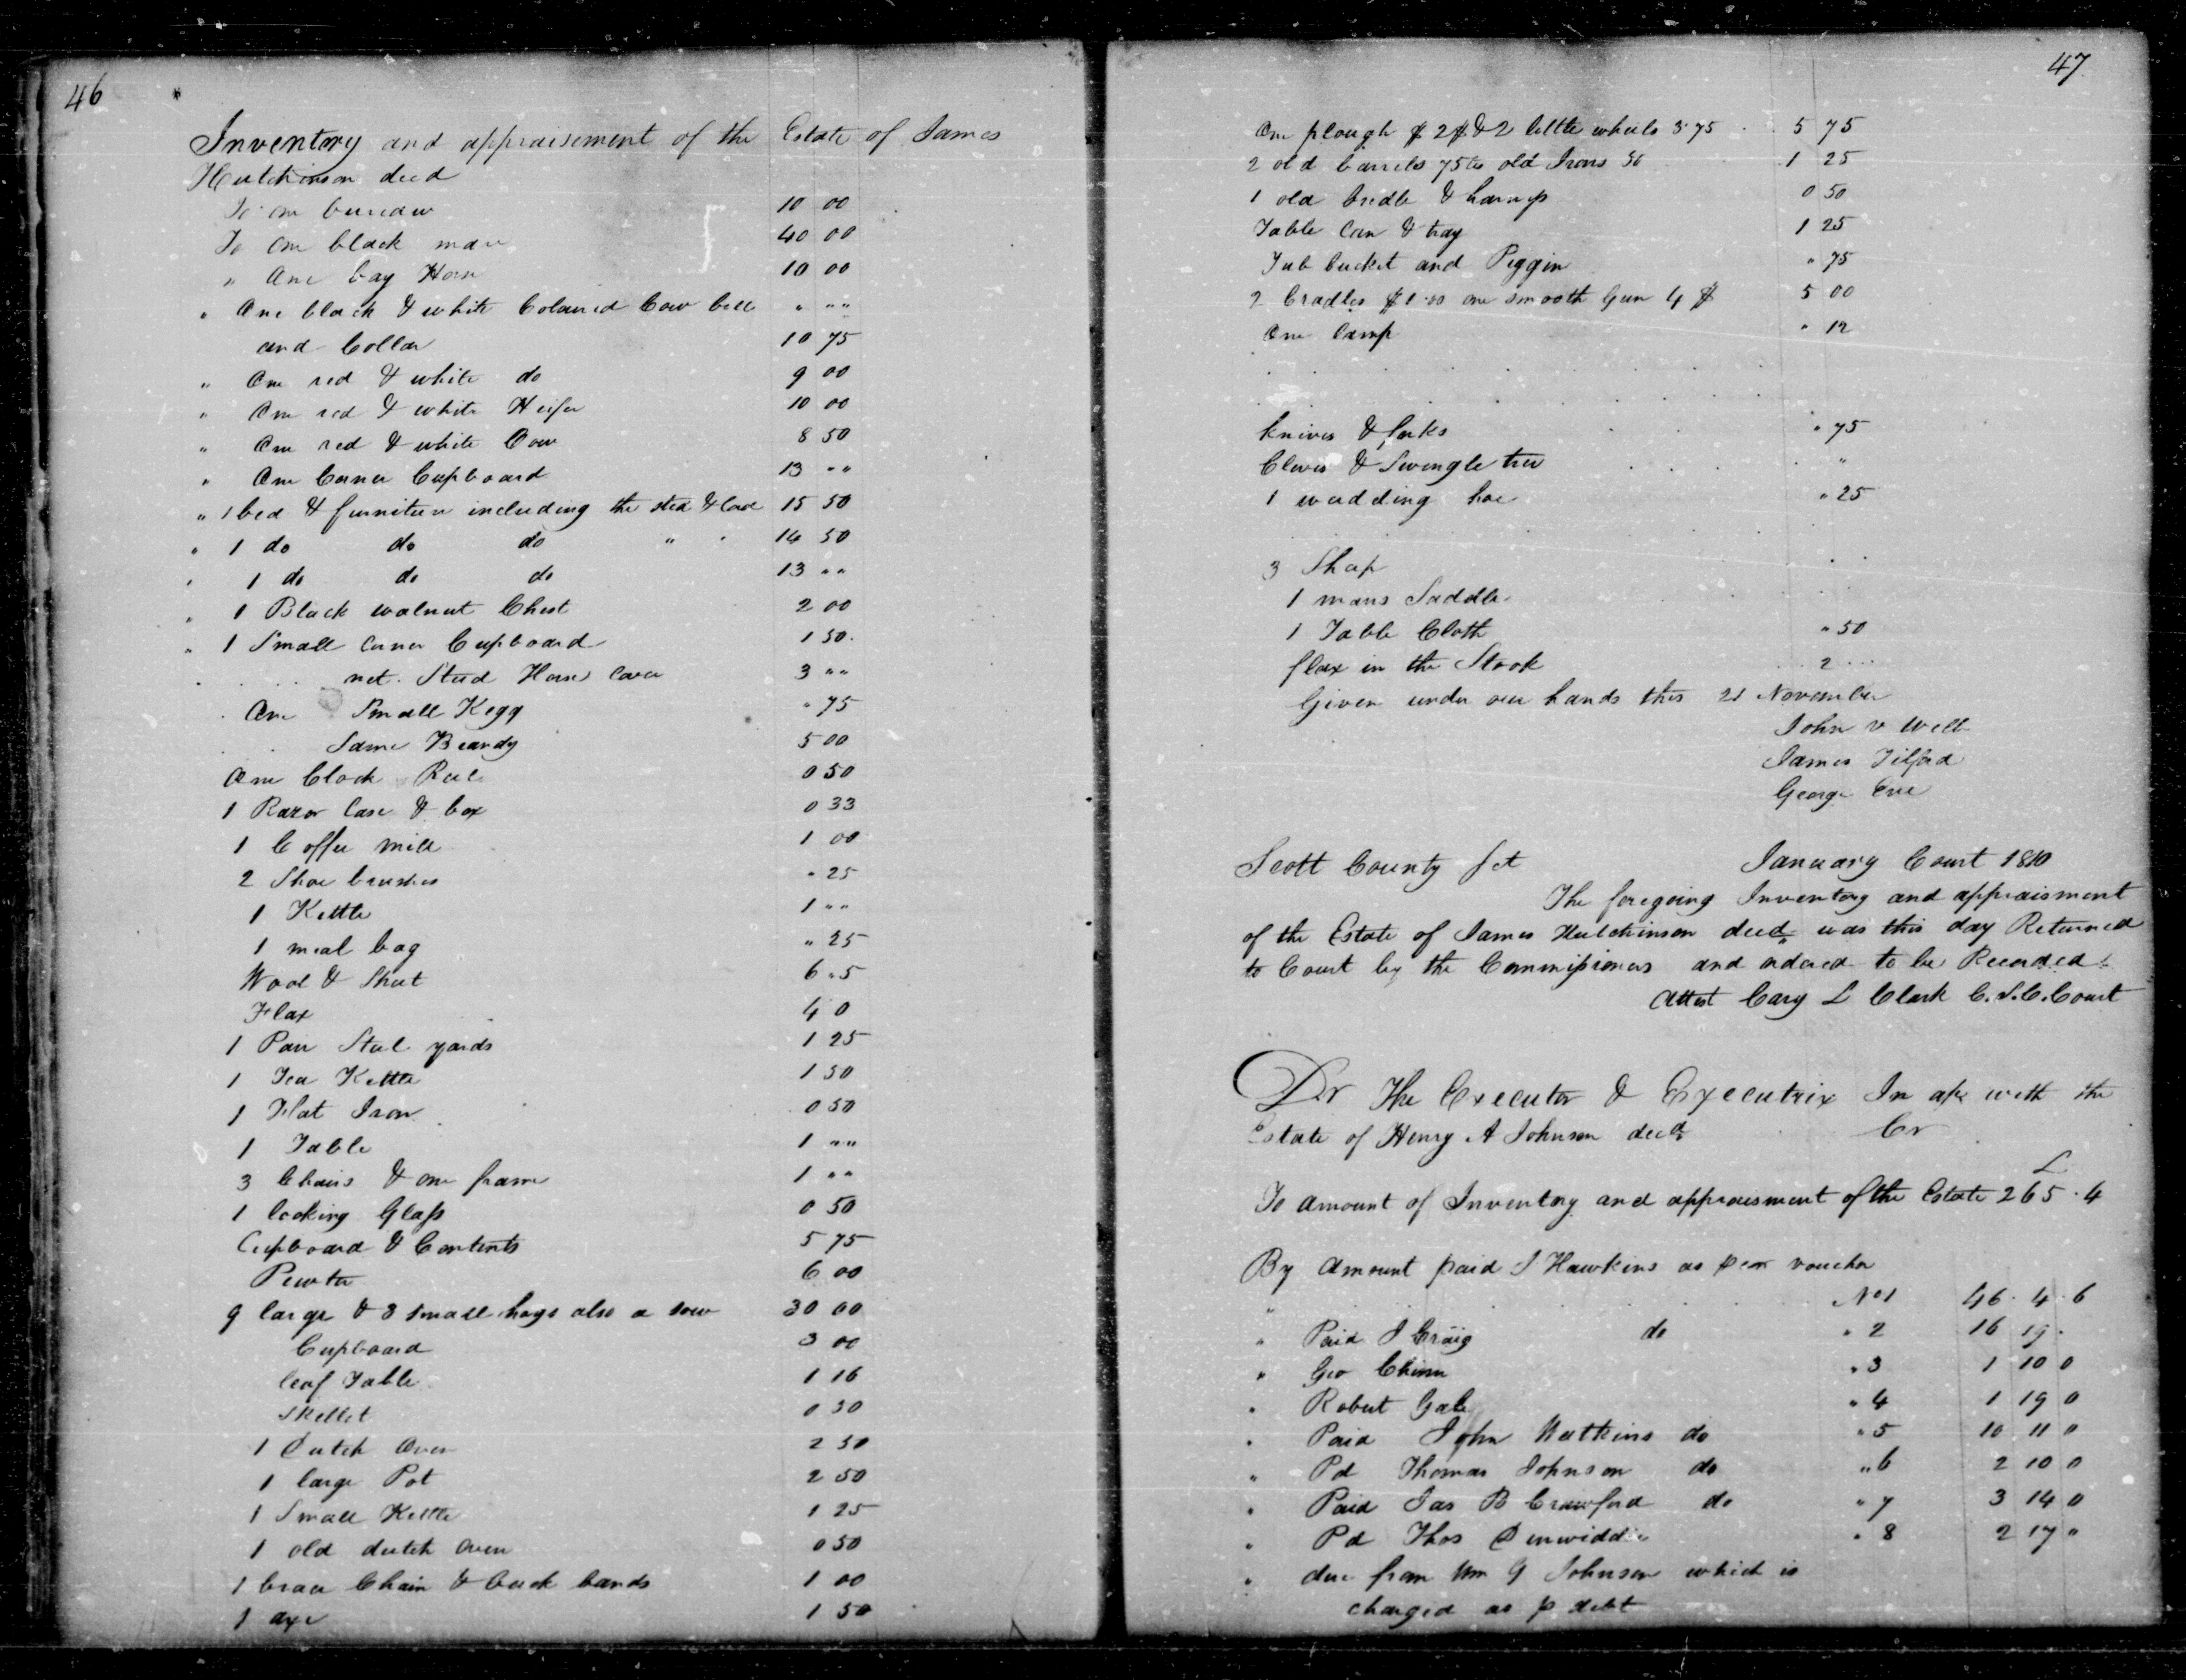 46
Inventory and appraisement of the Estate of James
Hutchinson decd
To one bureau 10 00
To one black mare 40 00
" One bay Horse 10 00
" One black & white Coloured Cow bell " " "
and Collar 10 75
" One red & white do 9 00
" One red & white Heifer 10 00
" One red & white Cow 8 50
" One Corner Cupboard 13 " "
" 1 bed & furniture including the sted & Cord 15 50
" 1 do do do " " 14 50
" 1 do do do 13 " "
" 1 Black walnut Chest 2 00
" 1 Small corner Cupboard 1 50
Steed 3 " "
One Small Kegg " 75
Same Brandy 5 00
One Clock Reel 0 50
1 Razor Case & box 0 33
1 Coffee mill 1 00
2 Shoe brushes " 25
1 Kettle 1 " "
1 meal bag " 25
Wool & Sheet 6 " 5
Flax 4 0
1 Pair Steel yards 1 25
1 Tea Kettle 1 50
1 Flat Iron 0 50
1 Table 1 " "
3 Chairs & one frame 1 " "
1 looking Glass 0 50
Cupboard & Contents 5 75
Pewter 6 00
9 large & 3 small hogs also a sow 30 00
Cupboard 3 00
leaf Table 1 16
Skellet 0 50
1 Dutch Oven 2 50
1 large Pot 2 50
1 Small Kettle 1 25
1 old dutch Oven 0 50
1 brace Chain & back bands 1 00
1 axe 1 50
47
One plough $ 2 $ & 2 little wheels 3.75 5 75
2 old barrels 75 cts old Irons 50 1 25
1 old bridle & 0 50
Table Can & tray 1 25
Tub bucket and Piggin " 75
2 Cradles $ 1.00 one smooth Gun 4 $ 5 00
One Lamp " 12
knives & forks " 75
Clevis & Swingle tree "
1 weedding hoe " 25
3 Sheep
1 mans Saddle
1 Table Cloth " 50
flax in the Stook 2
Given under our hands this 21 November
John v Webb
James Tilford
George Eve
Scott County Sct January Court 1810
The foregoing Inventory and appraisment
of the Estate of James Hutchinson decd was this day Returned
to Court by the Commissioners and ordered to be Recorded
Attest Cary L Clark C.S.C.Court
Dr The Executor & Executrix In a/c with the
Estate of Henry A Johnson decd Cr
£
To amount of Inventory and appraisment of the Estate 265 . 4
By Amount paid J Hawkins as per voucher
" No 1 46 . 4 . 6
" Paid J Craig do " 2 16 19 .
" Geo Chinn " 3 1 10 0
" Robert Gale " 4 1 19 0
" Paid John Watkins do " 5 10 11 0
" Pd Thomas Johnson do " 6 2 10 0
" Paid Jas B Crawford do " 7 3 14 0
" Pd Thos Dinwiddie " 8 2 17 "
" due from Wm G Johnson which is
charged as p debt